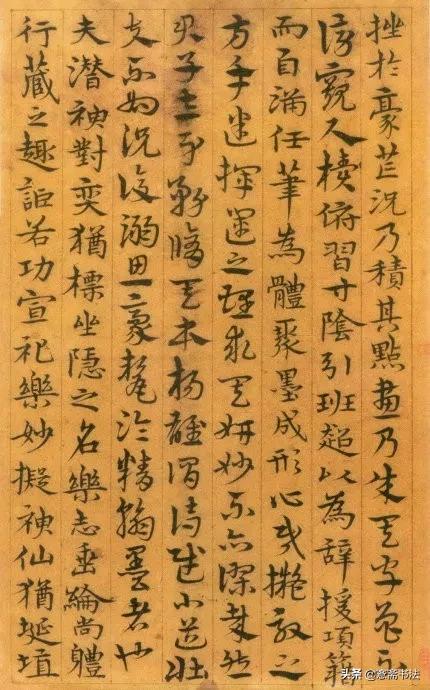 挫於豪芒況云積其點畫乃成其字曾不
傍窺尺牘俯習寸陰引班超以為辭援項籍
而自滿任筆為體聚墨成形心昏擬效之
方手迷揮運之理求其妍妙不亦謬哉然
君子立身務脩其本楊雄謂詩賦小道壯
夫不為況復溺思豪釐淪精翰墨者也
夫潛神對奕猶標坐隱之名樂志垂綸尚體
行藏之趣詎若功宣禮樂妙擬神仙猶埏埴
头条 @斋书法